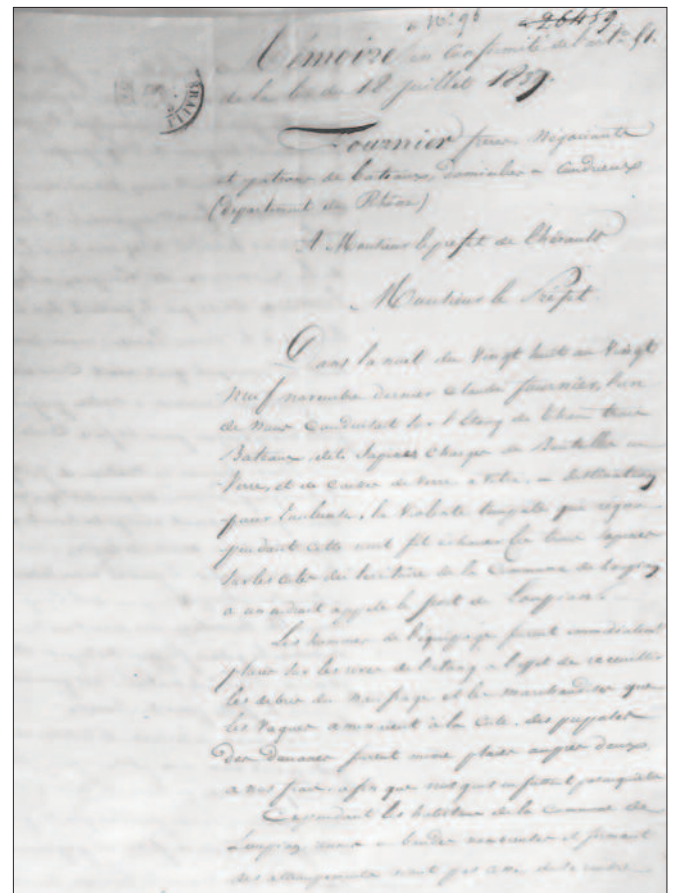 N° 96 26459
Mémoire en conformité de l'art. 51.
de la loi du 18 juillet 1837.
Fournier frères Négociants
et patrons de bateaux, domiciliés a Condrieux
(département du Rhône)
A Monsieur le préfet de l'hérault
Monsieur le Préfet.
Dans la nuit du Vingt huit au Vingt
Neuf novembre dernier Claude fournier, l'un
de nous Conduisait sur l'Etang de thau trois
Bateaux dits Sapines Chargés de Bouteilles en
Verre, et de Caisses de verre a Vitre, en destination
pour Toulouse, la Violente tempête qui régna
pendant cette nuit fit échouer les trois Sapines
sur les côtes du territoire de la Commune de Loupian
a un endroit appelé le port de Loupian.
Les hommes de l'équipage furent immédiatement
placés sur les rives de l'étang a l'effet de recueillir
les débris du Naufrage et les marchandises que
les Vagues amenaient à la Côte. des préposés
des Douanes furent même placés auprès deux,
a nos frais, afin que
Cependant les habitans de la Commune de
Loupian réunis en bandes nombreuses et formant
des attroupements